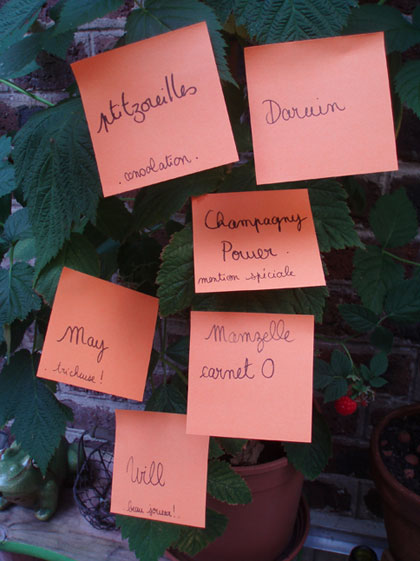 ptitzoreilles
. consolation .
Darwin
Champagny
Power .
mention spéciale
May
tricheuse !
Mamzelle
carnet O
Will
beau joueur !